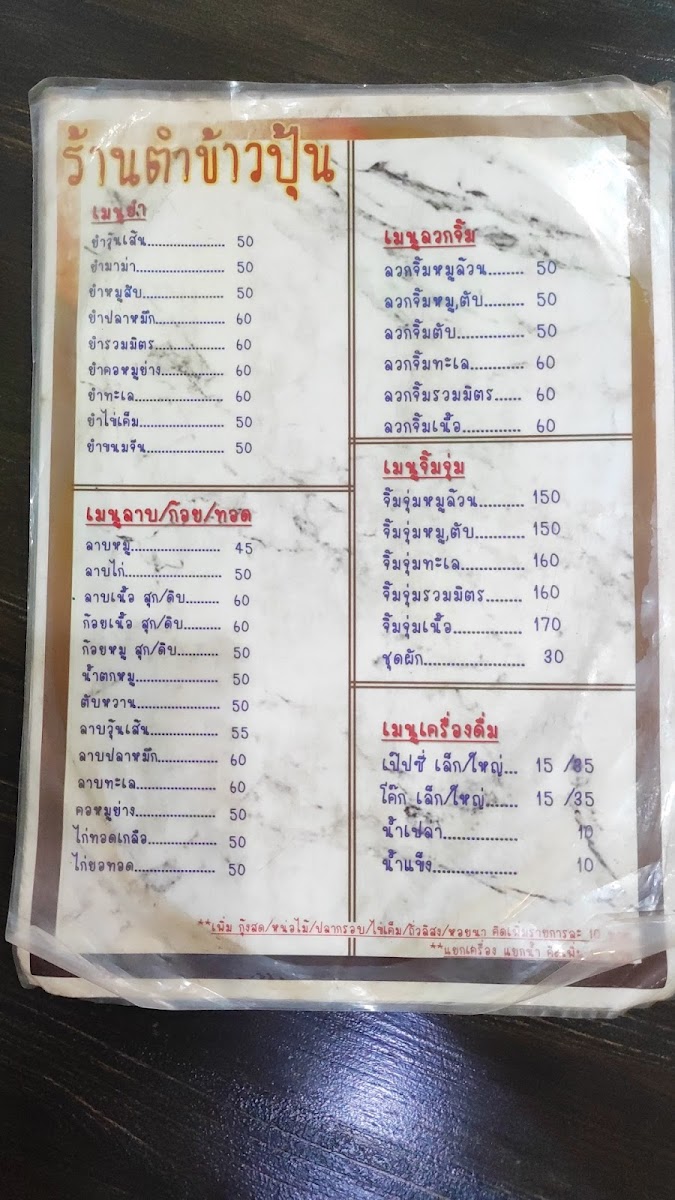 ร้านตำข้าวปุ้น
เมนูยำ
ยำวุ้นเส้น..................... 50
ยำมาม่า........................ 50
ยำหมูสับ...................... 50
ยำปลาหมึก................... 60
ยำรวมมิตร................... 60
ยำคอหมูย่าง................. 60
ยำทะเล........................ 60
ยำไข่เค็ม...................... 50
ยำขนมจีน..................... 50
เมนูลาบ/ก้อย/ทอด
ลาบหมู........................ 45
ลาบไก่.......................... 50
ลาบเนื้อ สุก/ดิบ......... 60
ก้อยเนื้อ สุก/ดิบ......... 60
ก้อยหมู สุก/ดิบ........... 50
น้ำตกหมู...................... 50
ตับหวาน....................... 50
ลาบวุ้นเส้น................... 55
ลาบปลาหมึก................ 60
ลาบทะเล...................... 60
คอหมูย่าง..................... 50
ไก่ทอดเกลือ................. 50
ไก่ยอทอด..................... 50
เมนูลวกจิ้ม
ลวกจิ้มหมูล้วน......... 50
ลวกจิ้มหมู,ตับ........... 50
ลวกจิ้มตับ................. 50
ลวกจิ้มทะเล.............. 60
ลวกจิ้มรวมมิตร...... 60
ลวกจิ้มเนื้อ............... 60
เมนูจิ้มจุ่ม
จิ้มจุ่มหมูล้วน........... 150
จิ้มจุ่มหมู,ตับ............ 150
จิ้มจุ่มทะเล............... 160
จิ้มจุ่มรวมมิตร......... 160
จิ้มจุ่มเนื้อ................. 170
ชุดผัก......................... 30
เมนูเครื่องดื่ม
เป๊ปซี่ เล็ก/ใหญ่... 15 /35
โค๊ก เล็ก/ใหญ่....... 15 /35
น้ำเปล่า................ 10
น้ำแข็ง.................. 10
**เพิ่ม กุ้งสด/หน่อไม้/ปลากรอบ/ไข่เค็ม/ถั่วลิสง/หอยนา คิดเพิ่มรายการละ 10
**แยกเครื่อง แยกน้ำ